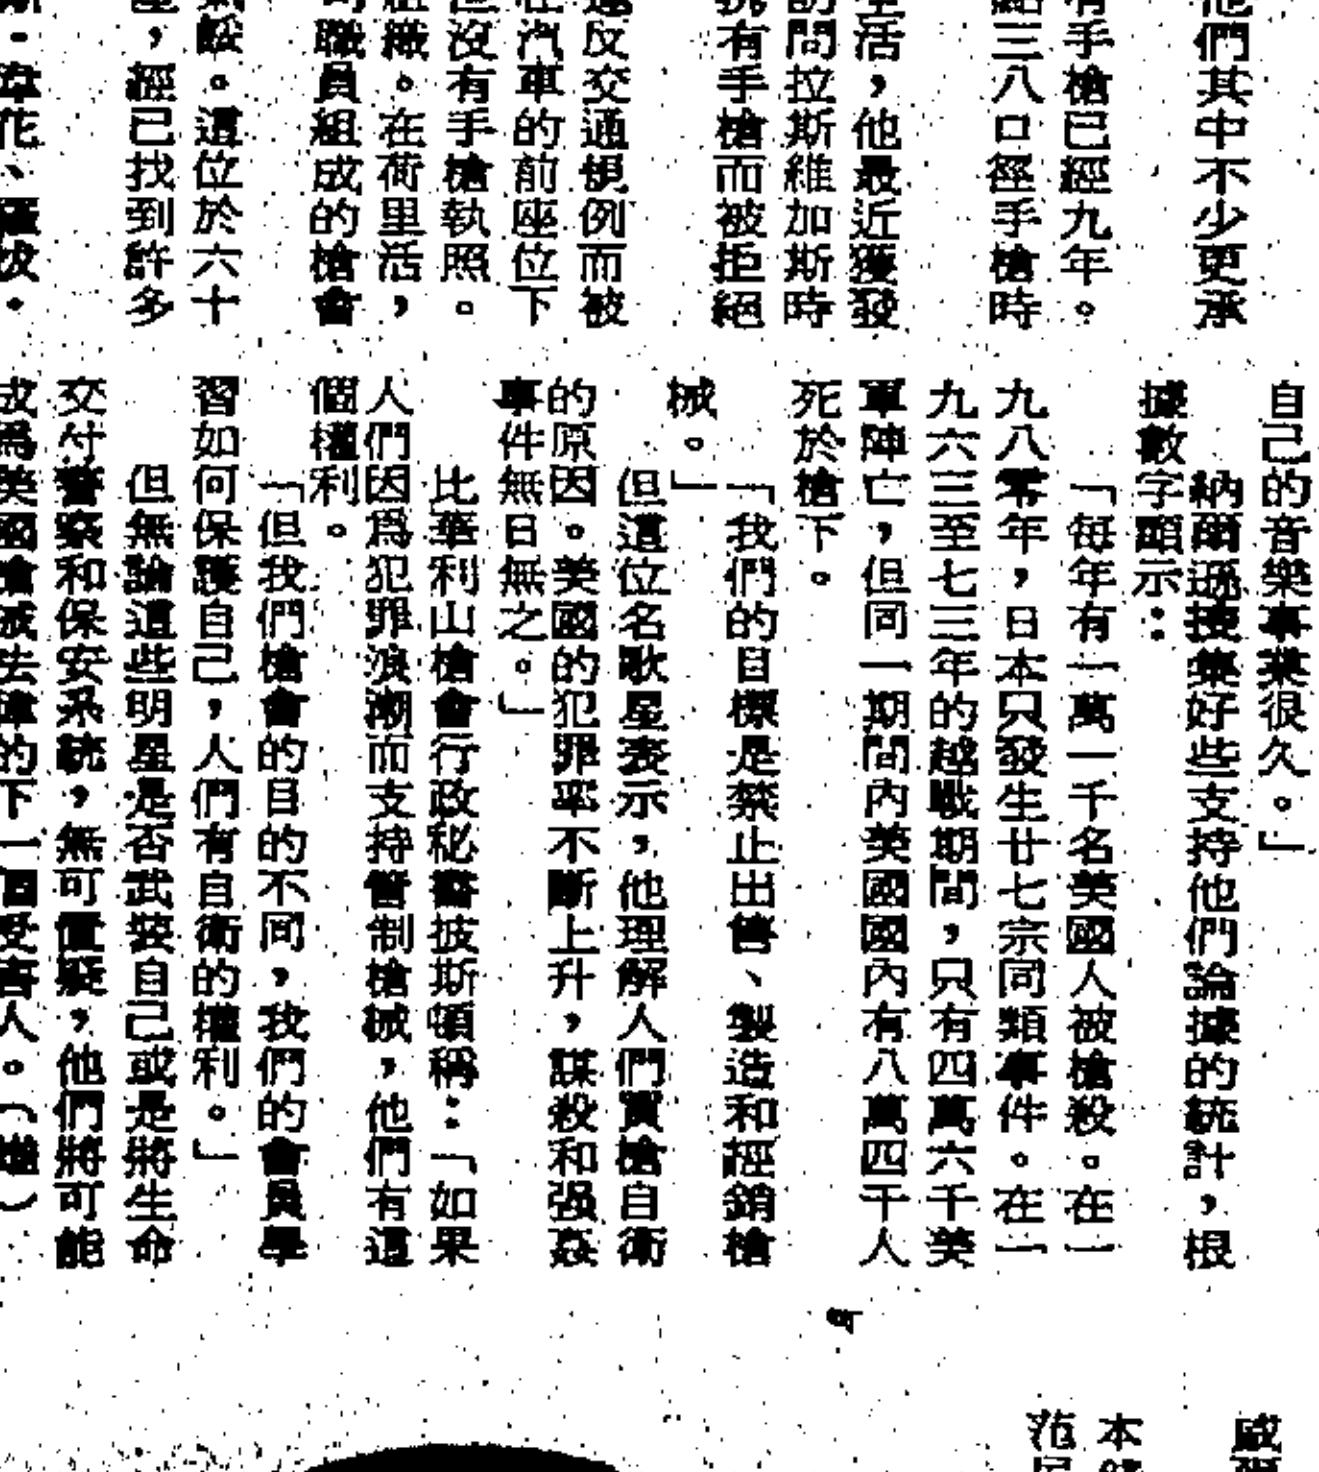 他們其中不少更承
有手槍已經九年。
點三八口徑手槍時
生活，他最近獲發
訪問拉斯維加斯時
擁有手槍而被拒絕
違反交通規例而被
在汽車的前座位下
但沒有手槍執照。
組織。在荷里活，
職員組成的槍會
。這位於六十
，經已找到許多
自己的音樂事業很久。」
納爾遜搜集好些支持他們論據的統計，根
據數字顯示：
「每年有一萬一千名美國人被槍殺。在一
九八零年，日本只發生廿七宗同類事件。在一
九六三至七三年的越戰期間，只有四萬六千美
軍陣亡，但同一期間內美國國內有八萬四千人
死於槍下。
「我們的目標是禁止出售、製造和經銷槍
械。」
但這位名歌星表示，他理解人們買槍自衛
的原因。美國的犯罪率不斷上升，謀殺和强姦
事件無日無之。」
比華利山槍會行政秘書披斯頓稱：「如果
人們因爲犯罪浪潮而支持管制槍械，他們有這
個權利。
「但我們槍會的目的不同，我們的會員學
習如何保護自己，人們有自衛的權利。」
但無論這些明星是否武裝自己或是將生命
交付警察和保安系統，無可置疑，他們將可能
成爲美國槍械法律的下一個受害人。
本
范